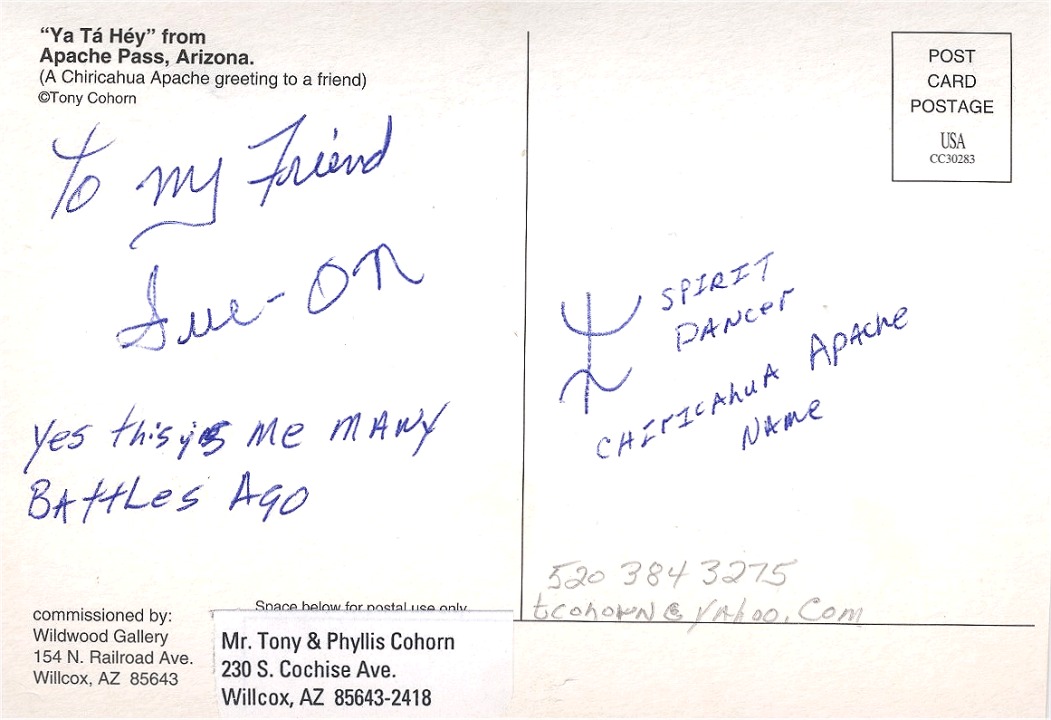 “Ya Tá Héy” from
Apache Pass, Arizona.
(A Chiricahua Apache greeting to a friend)
©Tony Cohorn
To my Friend
Sue-On
Yes this is me MANY
BAttLes Ago
commissioned by:
Wildwood Gallery
154 N. Railroad Ave.
Willcox, AZ 85643
Space below for postal use only
Mr. Tony & Phyllis Cohorn
230 S. Cochise Ave.
Willcox, AZ 85643-2418
POST
CARD
POSTAGE
USA
CC30283
SPIRIT
DANCer
CHIricAhuA Apache
NAme
520 384 3275
tcohorn@yahoo.com